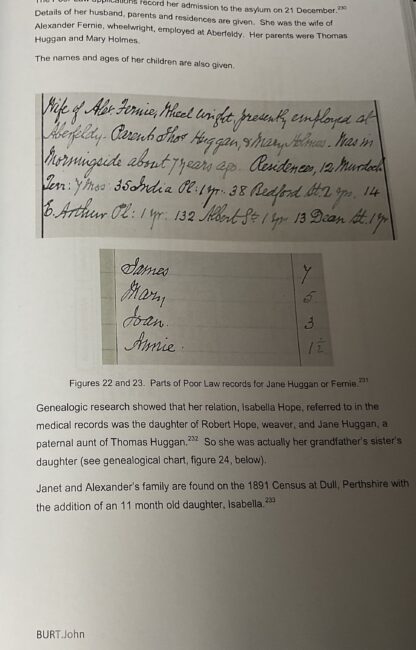 The Poor Law applications record her admission to the asylum on 21 December.230
Details of her husband, parents and residences are given. She was the wife of
Alexander Fernie, wheelwright, employed at Aberfeldy. Her parents were Thomas
Huggan and Mary Holmes.
The names and ages of her children are also given.
Wife of Alex. Fernie, Wheelwright, presently employed at
Aberfeldy. Parents Thos Huggan, & Mary Holmes. Was in
Morningside about 7 years ago. Residences, 12 Murdoch
Terr: 7 Mos: 35 India Pl: 1 yr. 38 Bedford St. 2 yrs. 14
E. Arthur Pl: 1 yr. 132 Albert St: 1 yr 13 Dean St. 1 yr
James 7
Mary 5
Joan. 3
Annie. 1½
Figures 22 and 23. Parts of Poor Law records for Jane Huggan or Fernie.231
Genealogic research showed that her relation, Isabella Hope, referred to in the
medical records was the daughter of Robert Hope, weaver, and Jane Huggan, a
paternal aunt of Thomas Huggan.232 So she was actually her grandfather's sister's
daughter (see genealogical chart, figure 24, below).
Janet and Alexander's family are found on the 1891 Census at Dull, Perthshire with
the addition of an 11 month old daughter, Isabella.233
BURT.John